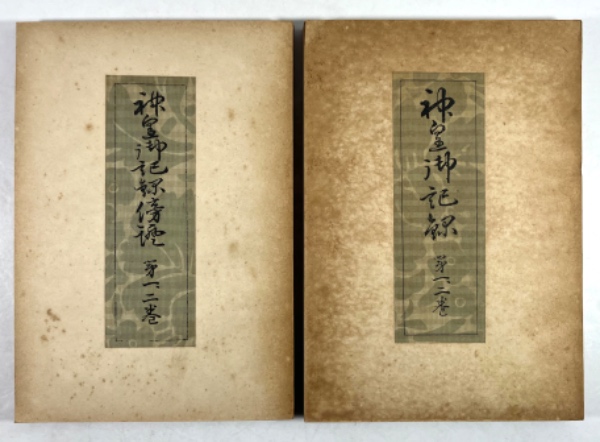 神皇御記録傍證 第一、二巻
神皇御記録 第一、二巻